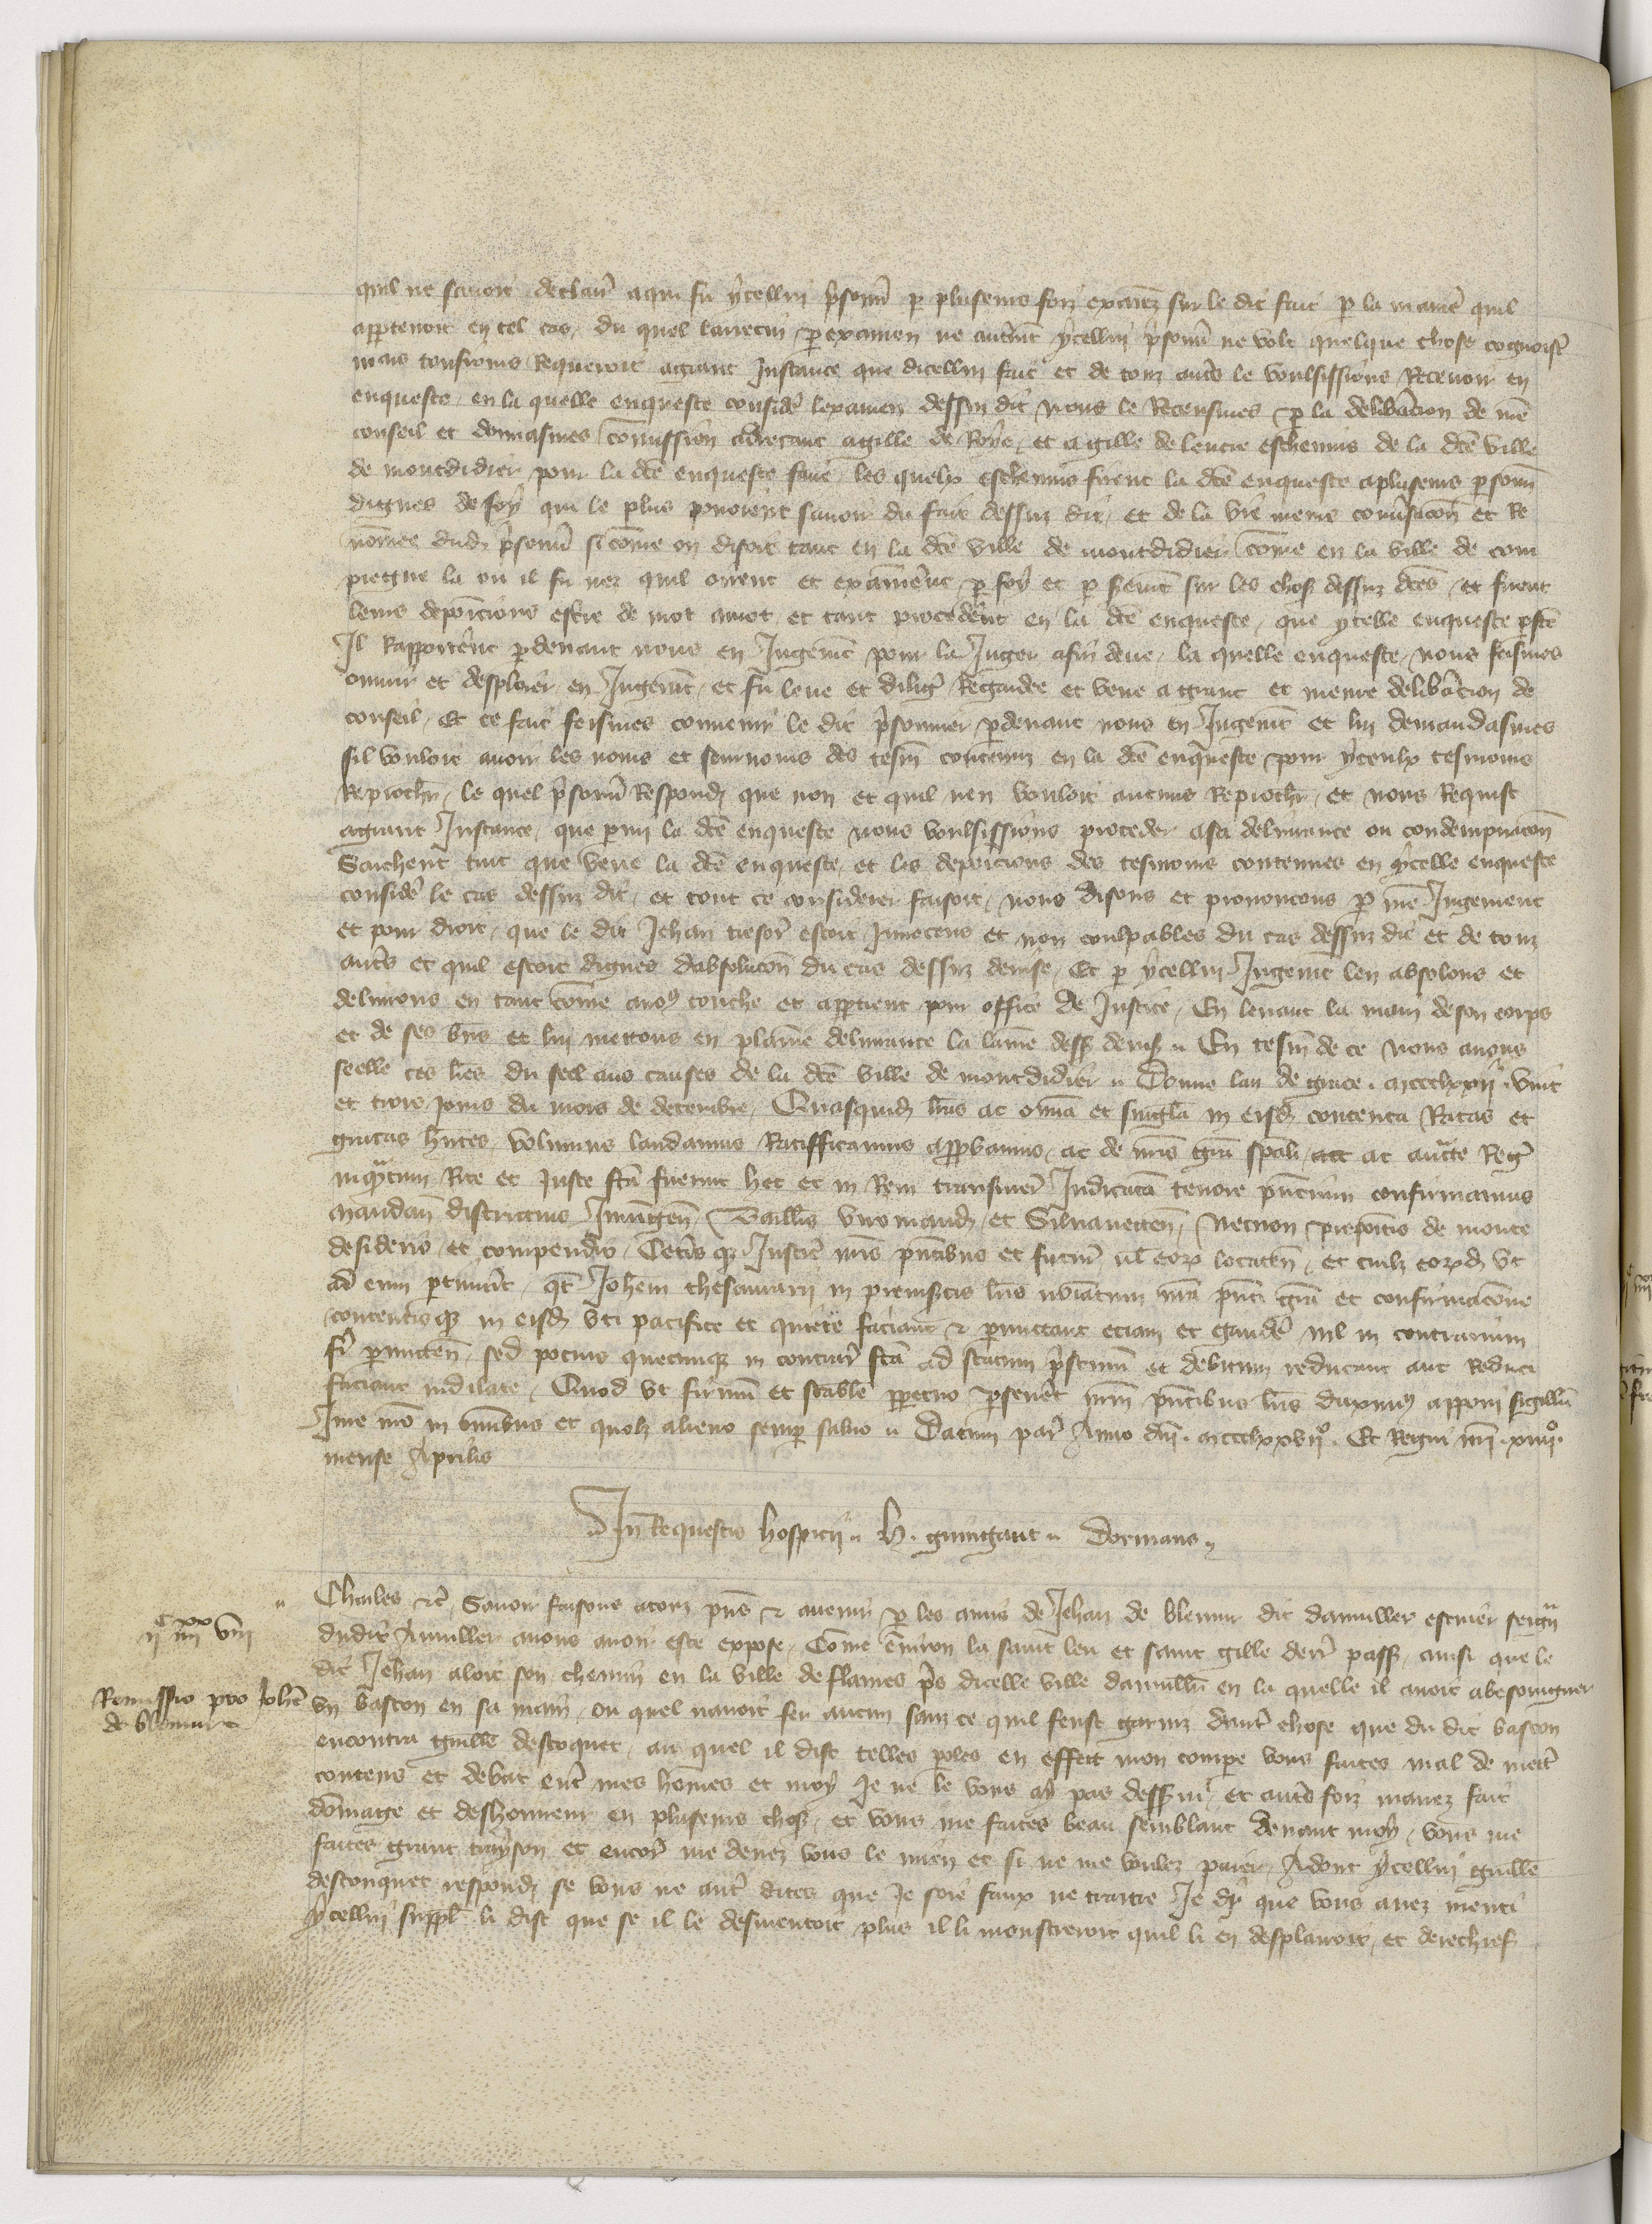 quil ne sauoit declair̃ a qui fu ycellui p̃sonñ p plusieurs foiz examiez sur le dit fait p la manie quil
appartenoit en tel cas, du quel larrecin p examen ne autremt ycellui p̃sonñ ne volt quelque chose cognoistr̃
mais tousiours Requeroit a grant Instance que dicellui fait et de touz autr̃s le voulsissions Receuoir en
enqueste, en la quelle enqueste considr̃e lexamen dessus dit nous le Receusmes p la delibãcion de nr̃e
conseil et donnasmes cõmission adrecant a gille de Roye, et a gille de leucre escheuins de la dcẽ ville
de montdidier pour la dcẽ enqueste faire, les quelx escheuins firent la dcẽ enqueste a plusieurs personñ
dignes de foy qui le plus pouoient sauoir du fait dessuz dit, et de la vie meurs conũsacoñ et Re
nõmee dud p̃sonñ si cõme on disoit tant en la dcẽ ville de montdidier cõme en la ville de com
piegne la ou il fu nez quil oirent et examinẽnt p foy et p sermt sur les chos dessuz dcẽs, et furent
leurs depõicions escr̃e de mot a mot, et tant procedẽnt en la dcẽ enqueste, que ycelle enqueste pftẽ
Il Rapportẽnt p deuant nous en Jugemt pour la Juger a fin deue, la quelle enqueste, nous feismes
ouurir et desploier en Jugemt, et fu leue et diligẽ Regardee et veue a grant et meure delibãcion de
conseil, Et ce fait feismes conuenir le dit p̃sonnier p deuant nous en Jugemt et lui demandasmes
sil vouloit auoir les noms et sournoms des tesm̃ contenuz en la dcẽ enqueste pour yceulx tesmoins
Reprochr̃, le quel p̃sonñ Respond que non et quil nen vouloit aucuns Reprochr̃, et nous Requist
a grant Instance, que p my la dcẽ enqueste nous voulsissions proceder a sa deliurance ou condempnacoñ
Saichent tuit que veue la dcẽ enqueste, et les depoicions des tesmoins contenues en ycelle enqueste
considr̃e le cas dessuz dit, et tout ce considerer faisoit, nous disons et prononcons p nr̃e Jugement
et pour droit, que le dit Jehan tresor̃ estoit Innocens et non coulpables du cas dessuz dit et de touz
autr̃s et quil estoit dignes dabsolucoñ du cas dessuz deuise, Et p ycellui Jugemt len absolons et
deliurons en tant cõme a noꝰ touche et appartient pour office de Justice, En leuant la main de son corps
et de ses biẽs et lui mettons en plaine deliurance la laine dess deuise ,, En tesm̃ de ce nous auons
seelle ces lr̃es du seel aus causes de la dcẽ ville de montdidier ,, Donne lan de grace . mccclxxij . vint
et trois jours du mois de decembre, Quasquid lr̃as ac om̃ia et singla in eisd contenta Ratas et
gratas hñtes, volumus laudamus Ratifficamus approbamus, ac de nr̃is grã spãli, ac auctte Regĩ
inqᵃntum Rite et Juste ftã fuerunt hec et in Rem transiuer̃ Indicatã tenore pñtium confirmamus
Mandañ districtius Iniungeñ, Bailĩis viromand et Siluanecteñ, Necnon prepoĩtis de monte
desiderio, et compendio, Cetĩsqꝫ Justic̃ nr̃is pñtibus et futur̃ ul̃ eorꝫ locateñ, et cuilꝫ eorꝫd vt
ad eum ptinuit, qt̃ Johem thesaurarij in premissis lr̃is noiatum nr̃a pñti grã et confirmacoẽ
contentisqꝫ in eisd vti pacifice et quiete faciant & pmittant eciam et gaudẽ nil in contrarium
fĩ pmitteñ, sed pocius quecunqꝫ in contrar̃ ftã ad statum pr̃stinũ et debitum reducant aut Reduci
faciant indilate, Quod vt firmũ et stabile ppetuo pseuẽt nr̃m pñtibus lr̃is duximꝰ apponi sigillũ
Iure nr̃o in om̃ibus et quolꝫ alieno semp saluo ,, Datum par̃ Anno dñi . mccclxxvijº . Et Regni nr̃i . xiiijº.
mense Aprilis
In Requestis hospicij ,, h . guingant ,, Dormans ,,
ijᶜ iiijˣˣ viij
Charles &c̃, Sauoir faisons a touz pñs & auenir p les amis de Jehan de blemur dit damuller escuier seigñ
dudit Amuller auons auoir este expose, Cõme enuiron la saint leu et saint gille derr̃ pass, ainsi que le
dit Jehan aloit son chemin en la ville de flames pr̃s dicelle ville damullr̃ en la quelle il auoit a besoingner
Remissio pro Johẽ
de blemure
vn baston en sa main, ou quel nauoit fer aucun sanz ce quil feust garniz dautr̃ chose que du dit baston
encontra guille descoquet, au quel il dist telles poles en effect mon compe vous faites mal de mectr̃
contens et debat entr̃ mes hõmes et moy Je ne le vous ay pas dess ui, et autr̃s foiz mauez fait
dõmage et deshonneur en plusieurs chos, et vous me faites beau semblant deuant moy, vous me
faites grant trayson et encor̃ me deuez vous le mien et si ne me voulez paier, Adont ycellui guille
desconquet respond se vous ne autr̃ dites que Je soie faux ne traitre Je dy que vous auez menti
ycellui suppl̃ li dist que se il le desmentoit plus il li monstreroit quil li en desplairoit, et derechief